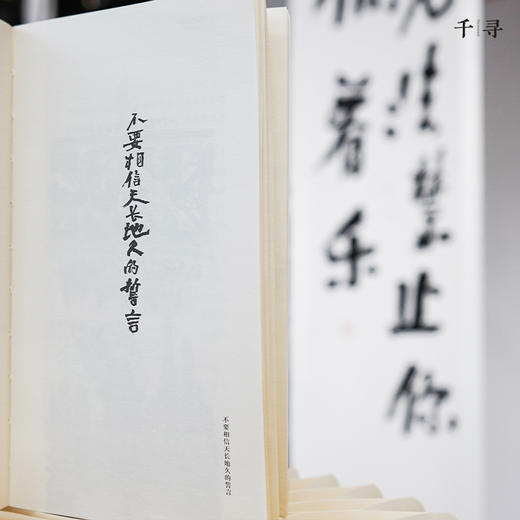 千寻
不要相信天长地久的誓言
不要相信天长地久的誓言
没禁止你
着乐